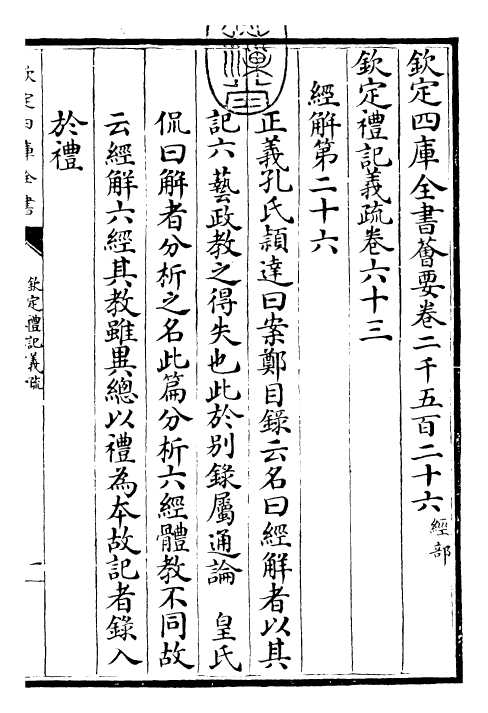 欽定四庫全書薈要卷二千五百二十六經部
欽定禮記義疏卷六十三
經解第二十六
正義孔氏頴達曰案鄭目錄云名曰經解者以其
記六藝政教之得失也此於别錄屬通論 皇氏
侃曰解者分析之名此篇分析六經體教不同故
云經解六經其教雖異總以禮為本故記者錄入
於禮
欽定四庫全書
欽定禮記義疏